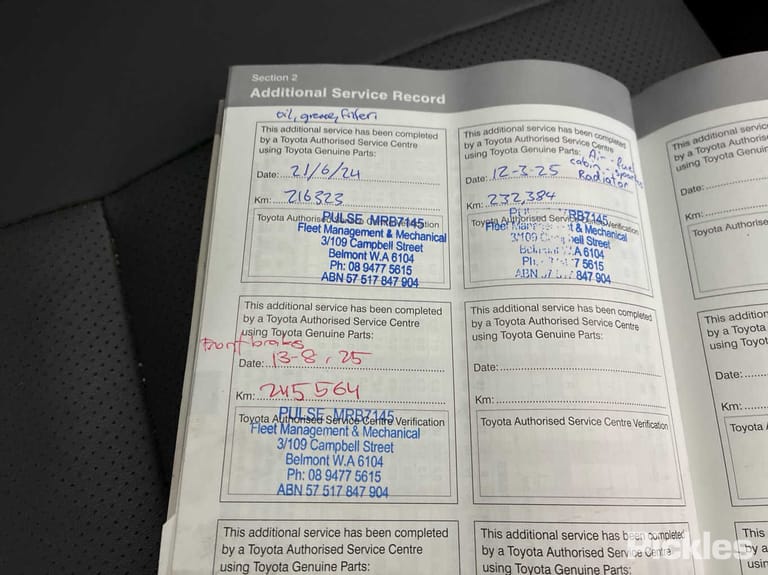 Section 2
Additional Service Record
oil, grease, filters
This additional service has been completed
by a Toyota Authorised Service Centre
using Toyota Genuine Parts:
Date: 21/6/24
Km: 216323
Toyota Authorised Verification
PULSE MRB7145
Fleet Management & Mechanical
3/109 Campbell Street
Belmont W.A 6104
Ph: 08 9477 5615
ABN 57 517 847 904
This additional service has been completed
by a Toyota Authorised Service Centre
using Toyota Genuine Parts:
Air - fuel
cabin -
Radiator
Date: 12-3-25
Km: 232,384
Toyota Authorised Service Verification
MRB7145
Fleet Management & Mechanical
3/109 Campbell Street
Belmont W.A 6104
5615
ABN 847 904
This additional service has been completed
by a Toyota Authorised Service Centre
using Toyota Genuine Parts:
Front brakes
Date: 13-8,25
Km: 245564
Toyota Authorised Service Centre Verification
PULSE MRB7145
Fleet Management & Mechanical
3/109 Campbell Street
Belmont W.A 6104
Ph: 08 9477 5615
ABN 57 517 847 904
This additional service has been completed
by a Toyota Authorised Service Centre
using Toyota Genuine Parts:
Date:
Km:
Toyota Authorised Service Centre Verification
This additional service has been completed
by a Toyota Authorised Service Centre
using Toyota Genuine Parts:
This additional service has been completed
by a Toyota Authorised Service Centre
using Toyota Genuine Parts:
This additional servic
by a Toyota Authorise
using Toyota Genuin
Date:
Km:
Toyota Authorise
This addition
by a Toyota
using Toyot
Date:
Km:
Toyota A
This
by a
usin
Pickles